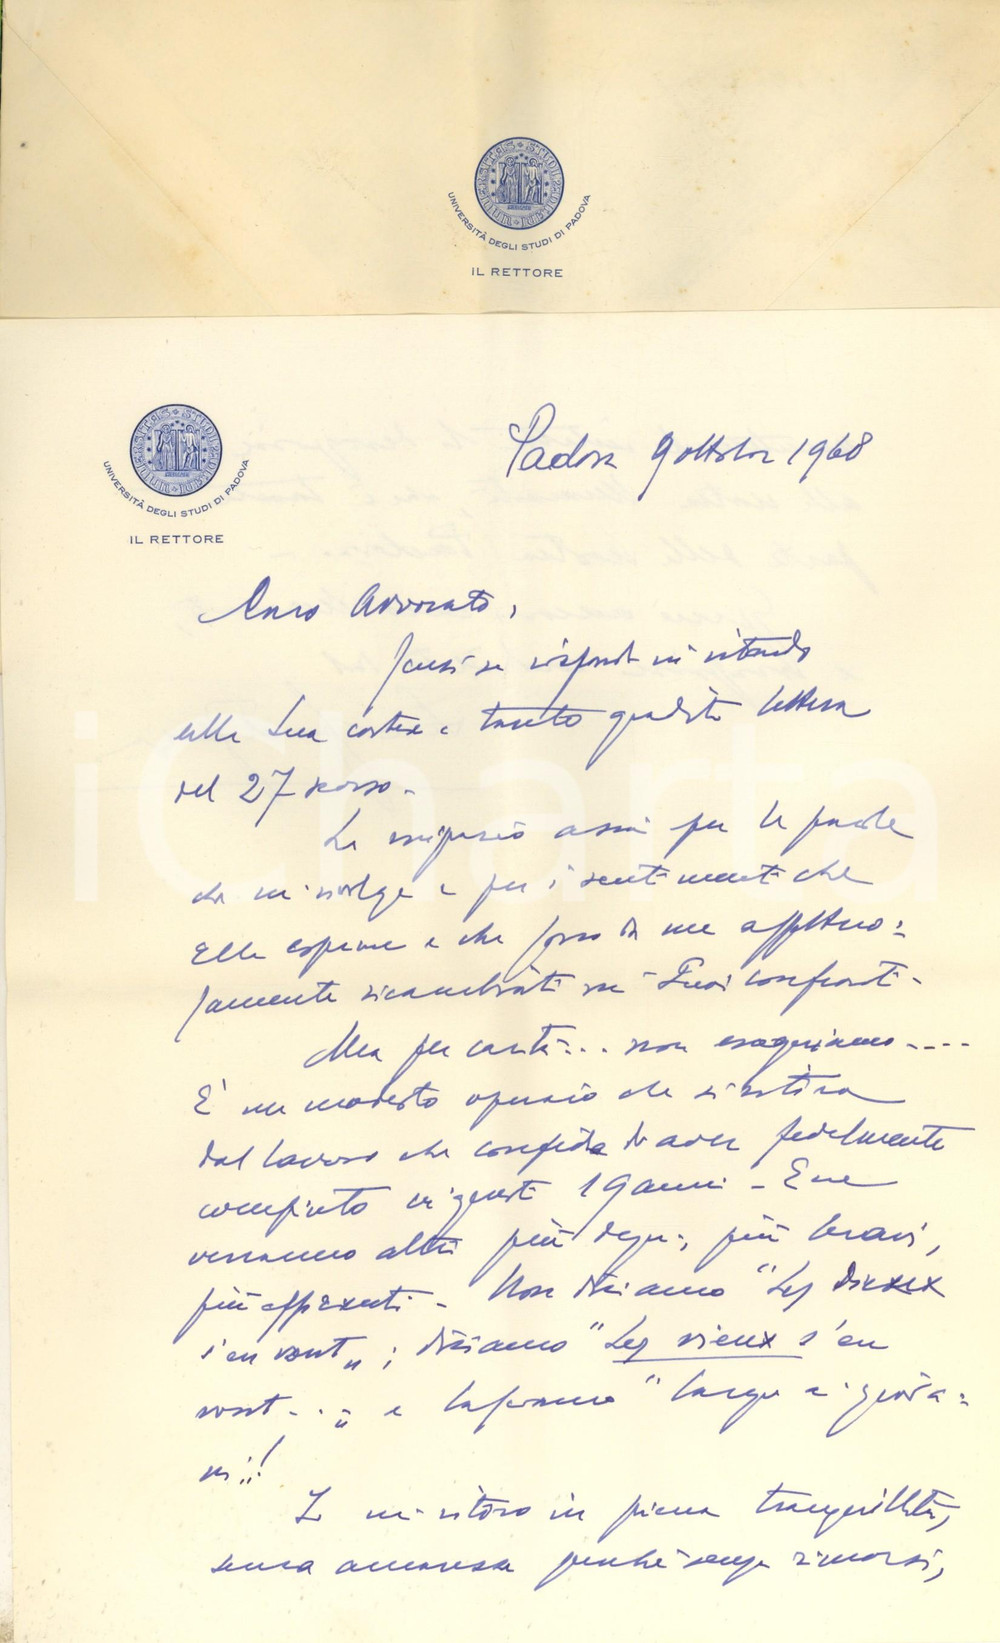 UNIVERSITAS STUDII PADUANI
UNIVERSITÀ DEGLI STUDI DI PADOVA
IL RETTORE
UNIVERSITAS STUDII PADUANI
UNIVERSITÀ DEGLI STUDI DI PADOVA
IL RETTORE
Padova 9 ottobre 1968
Caro Avvocato,
scusi se rispondo in ritardo
alla Sua cortese e tanto gradita lettera
del 27 scorso.-
La ringrazio assai per le parole
che mi rivolge e per i sentimenti che
Ella esprime e che sono da me affettuo=
samente ricambiati nei Suoi confronti.-
Ma per carità... non esageriamo....
È un modesto operaio che si ritira
dal lavoro che confida di aver fedelmente
compiuto in questi 19 anni - E ne
verranno altri più degni, più bravi,
più apprezzati - Non diciamo "Les dieux
s'en vont„; diciamo "Les vieux s'en
vont..„ e lasciamo "largo ai giova=
ni„!
Io mi ritiro in piena tranquillità,
senza amarezza perché senza rimorsi,
iCharta